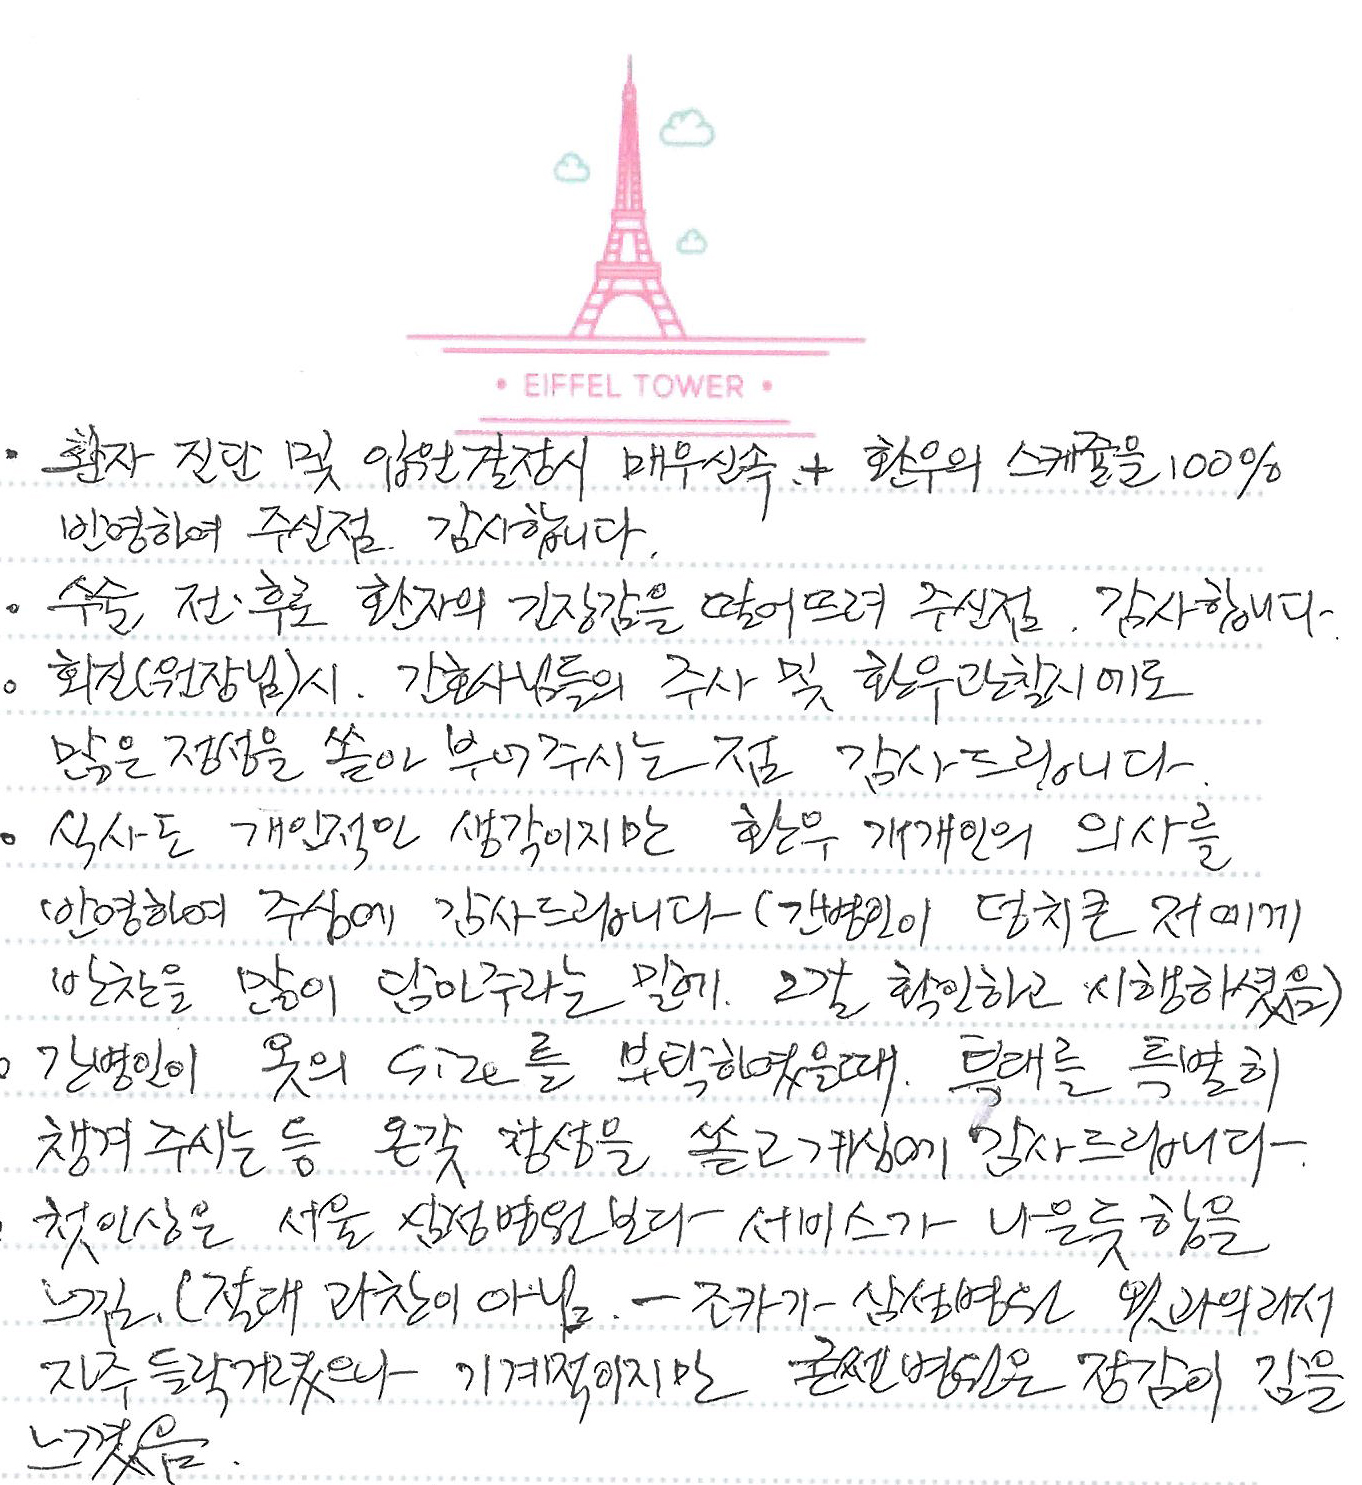 • EIFFEL TOWER •
• 환자 진단 및 입원결정시 매우신속.+ 환우의 스케쥴을 100%
반영하여 주신점. 감사합니다.
• 수술, 전·후로 환자의 긴장감을 떨어뜨려 주신점. 감사합니다.
• 회진(원장님)시. 간호사님들의 주사 및 환우관찰시에도
많은 정성을 쏟아 부어주시는 점 감사드립니다.
• 식사도 개인적인 생각이지만 환우 개개인의 의사를
반영하여 주심에 감사드립니다(간병인이 덩치큰 저에게
반찬을 많이 담아주라는 말에. 2갈 확인하고 시행하셨음)
• 간병인이 옷의 Size를 부탁하였을때. 특대를 특별히
챙겨 주시는 등 온갖 정성을 쏟고계심에 감사드립니다.
• 첫인상은 서울 삼성병원보다 서비스가 나은듯 함을
느낌.(절대 과찬이 아님. - 조카가 삼성병원 외과의라서
자주 들락거렸으나 기계적이지만 굳쎈병원은 정감이 김을
느꼈음.